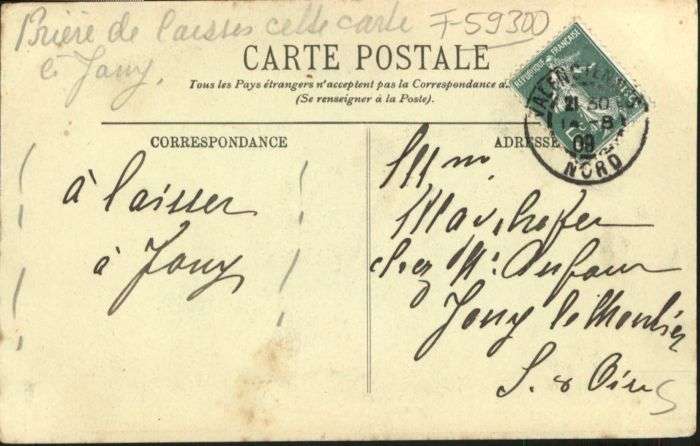 Prière de laisser cette carte F-59300
à Jouy.
CARTE POSTALE
Tous les Pays étrangers n'acceptent pas la Correspondance a
(Se renseigner à la Poste).
RÉPUBLIQUE FRANÇAISE
VALENCIENNES
21 30
14-8
09
NORD
CORRESPONDANCE
à laisser
à Jouy
ADRESSE
Mm.
chez Mr. Dufour
Jouy le Moutier
S. & Oise